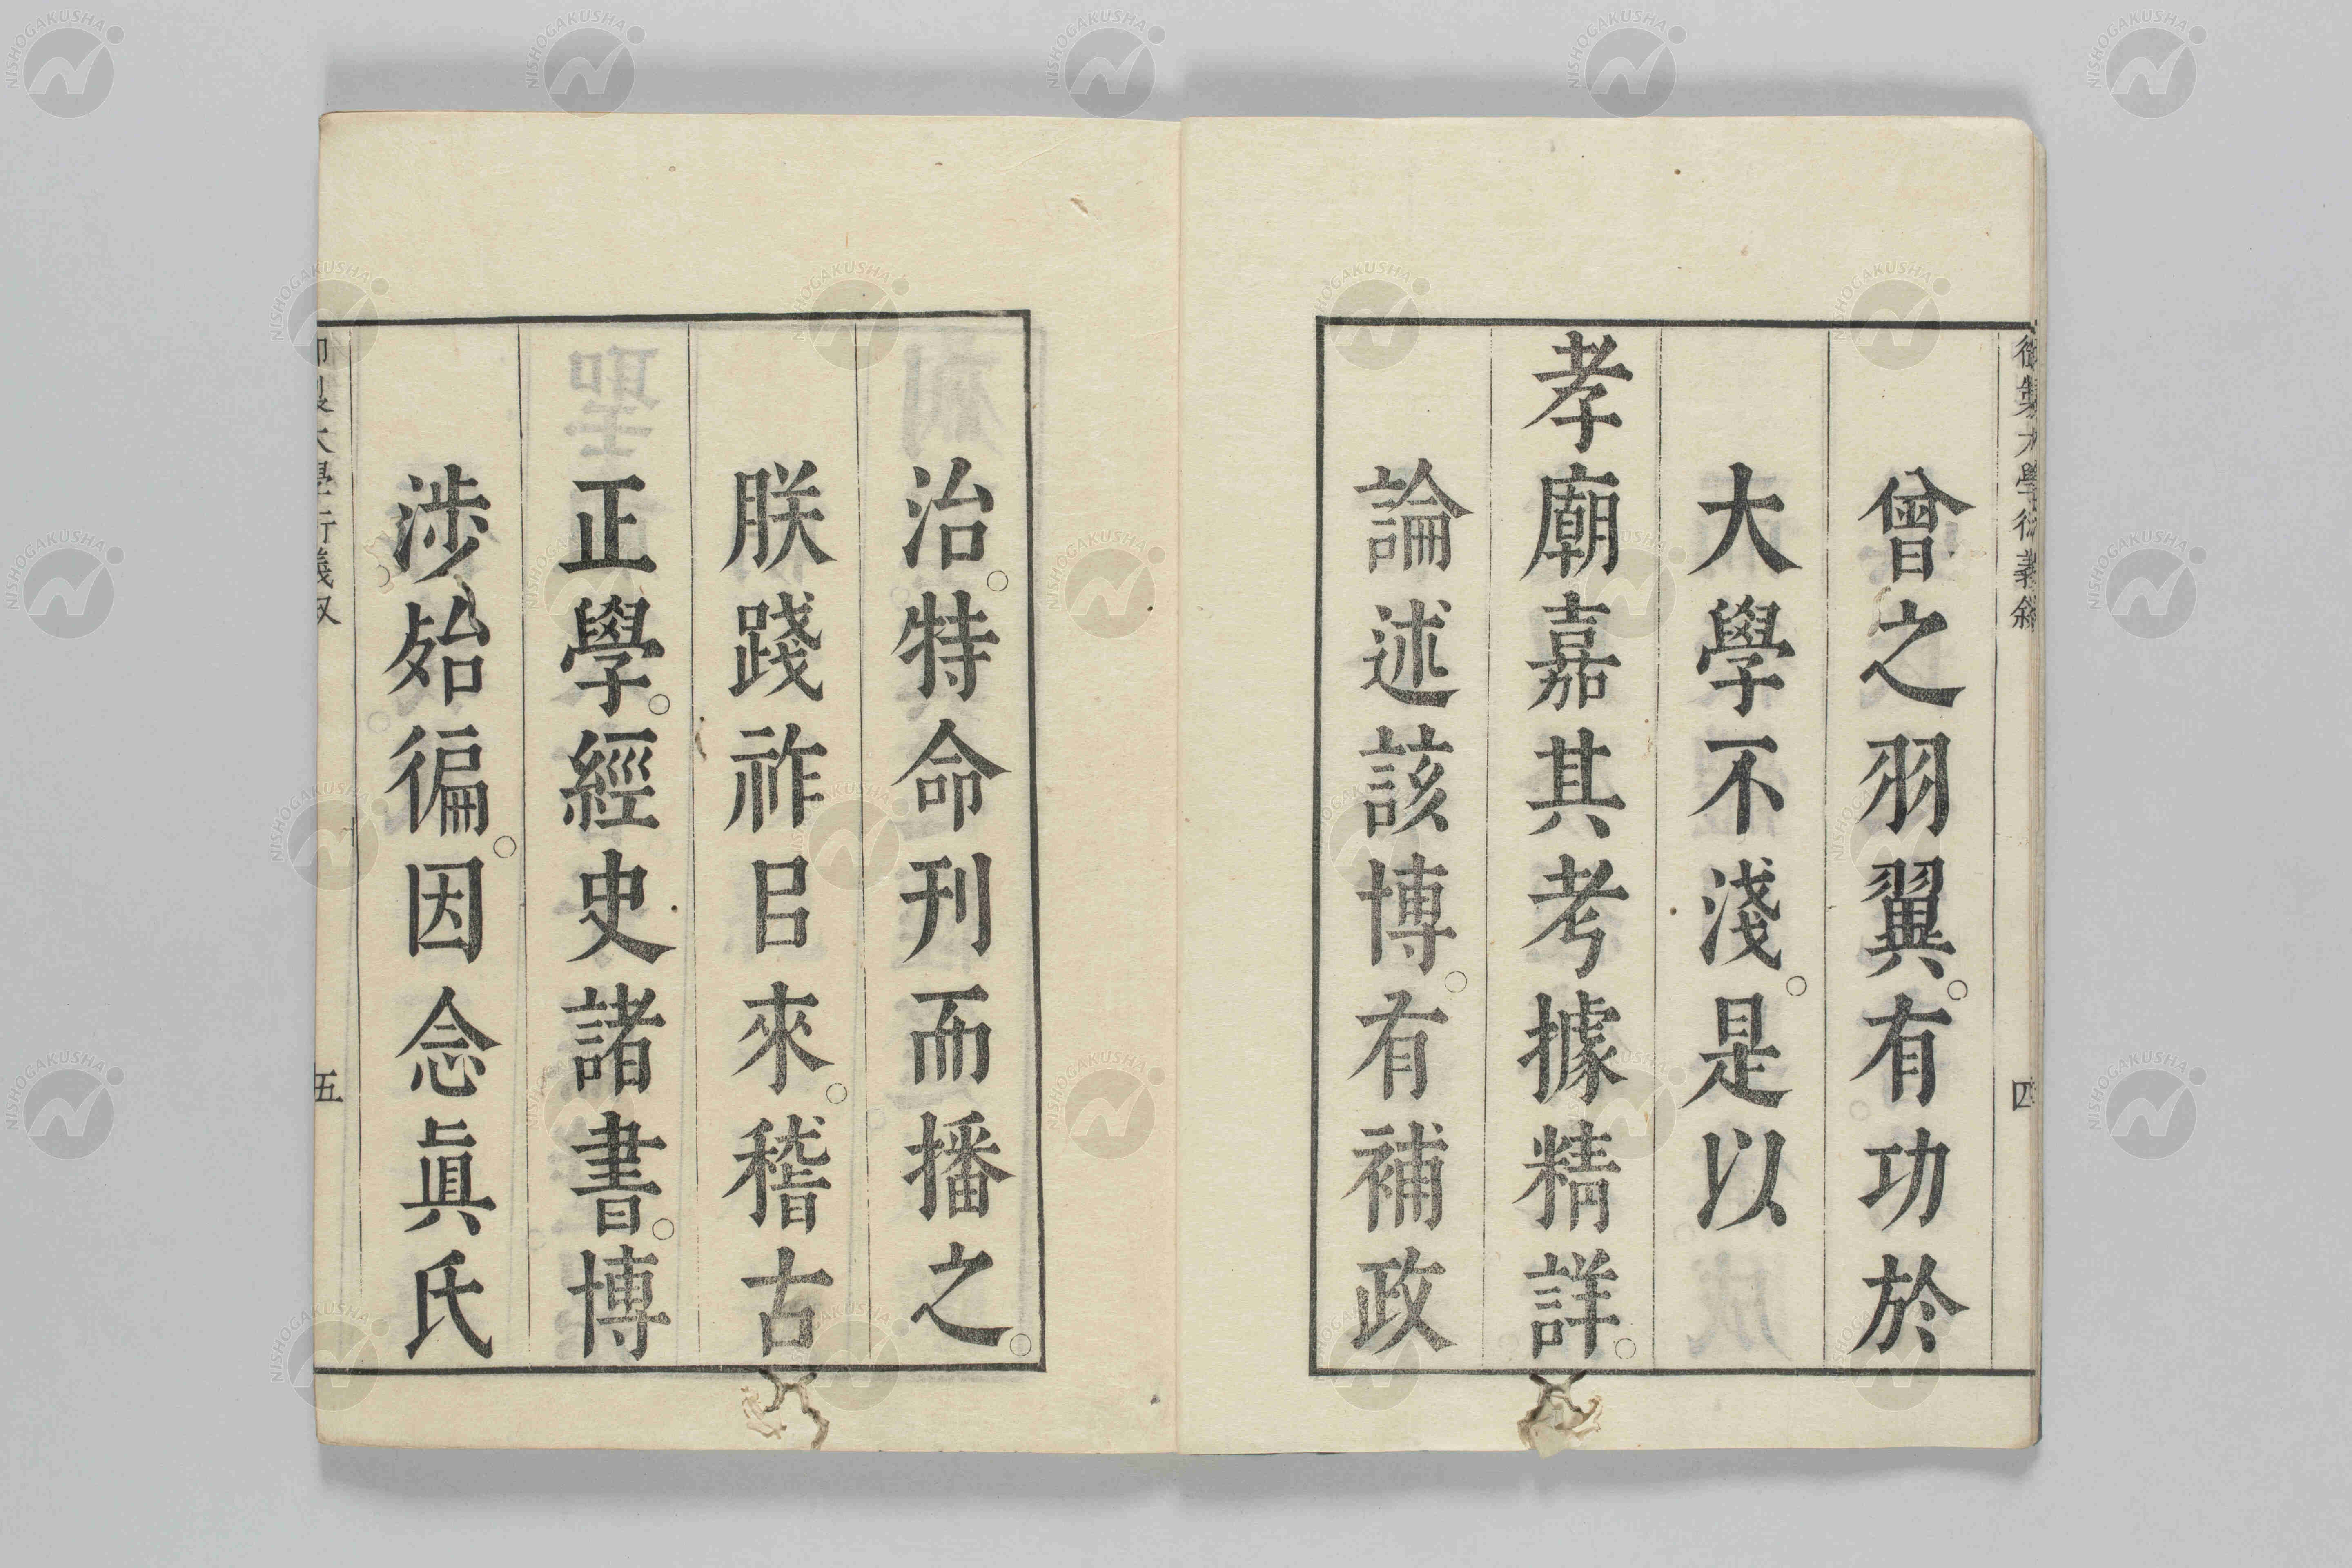 御製大學衍義敘
四
曾之羽翼。有功於
大學不淺。是以
孝廟嘉其考據精詳。
論述該博。有補政
治。特命刊而播之。
朕踐祚㠯來。稽古
正學。經史諸書。博
涉殆徧。因念眞氏
五
NISHOGAKUSHA